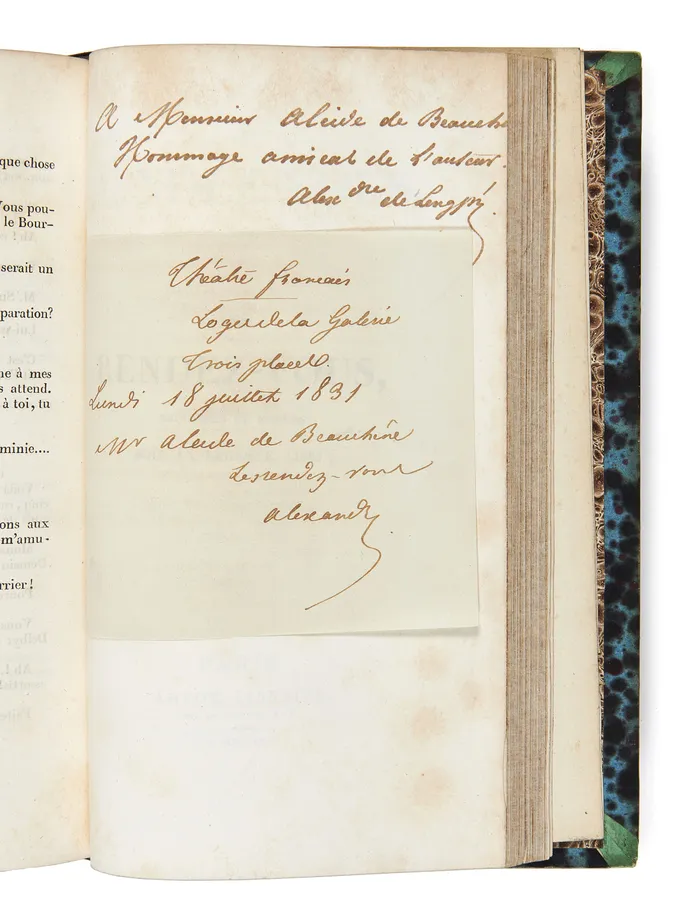 que chose
Vous pou-
le Bour-
serait un
paration?
ne à mes
s attend.
à toi, tu
minie....
ons aux
m'amu-
rrier!
A Monsieur Alcide de Beauche
Hommage amical de l'auteur.
Alexdre de Longpré
Théâtre français
Loges de la Galerie
Trois places
Lundi 18 juillet 1831
Mr Alcide de Beauchêne
Les rendez-vous
Alexandre